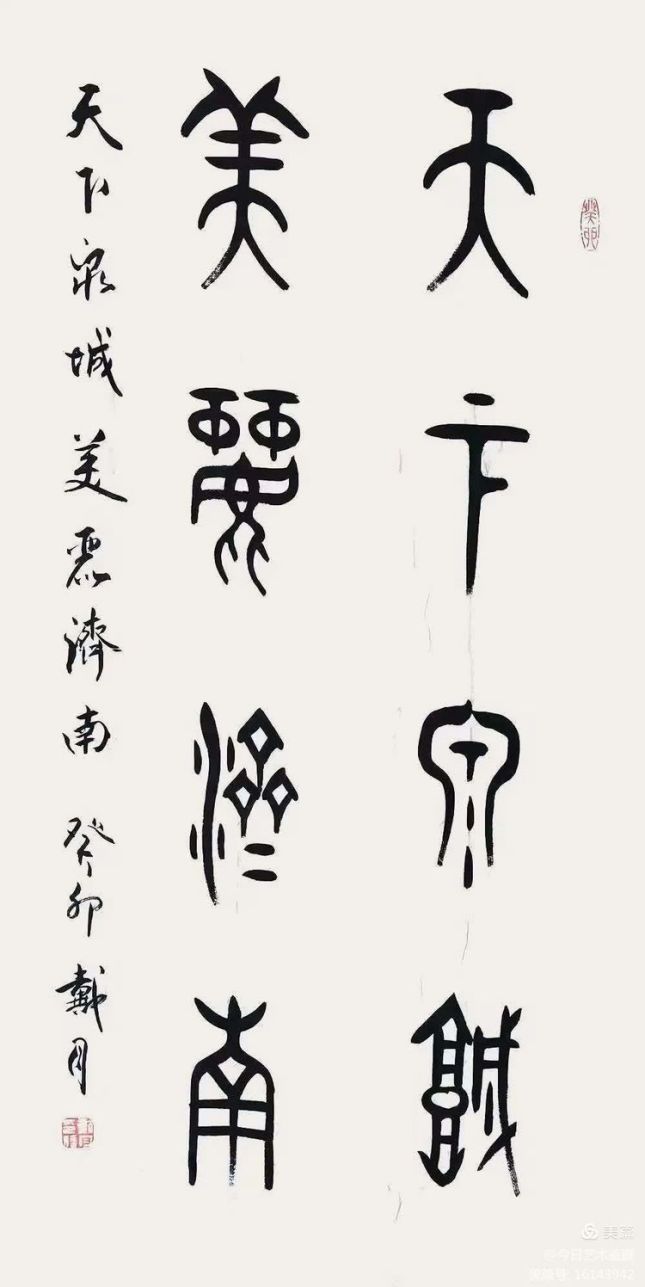 癸卯
天下泉城
美丽济南
天下泉城美丽济南 癸卯 戴月
美篇
@今日艺术鉴赏
美篇号:16143942